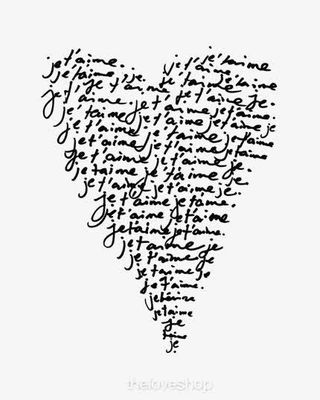 je t'aime. je t'aime
je t'aime, je. je t'aime
je t'aime je t'aime
je t'aime je t'aime je.
je t'aime je t'aime
je t'aime je t'aime je
je t'aime je t'aime
je t'aime je t'aime
je t'aime je t'aime je.
je taime je t'aime
je t'aime je t'aime je.
je t'aime je taime.
je t'aime je t'aime
je taime je t'aime.
je t'aime je
je t'aime je
je taime je
je t'aime.
je taime
je
taime
je
theloveshop